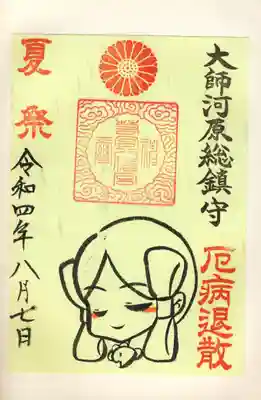 大師河原総鎮守
厄病退散
夏祭
令和四年八月七日